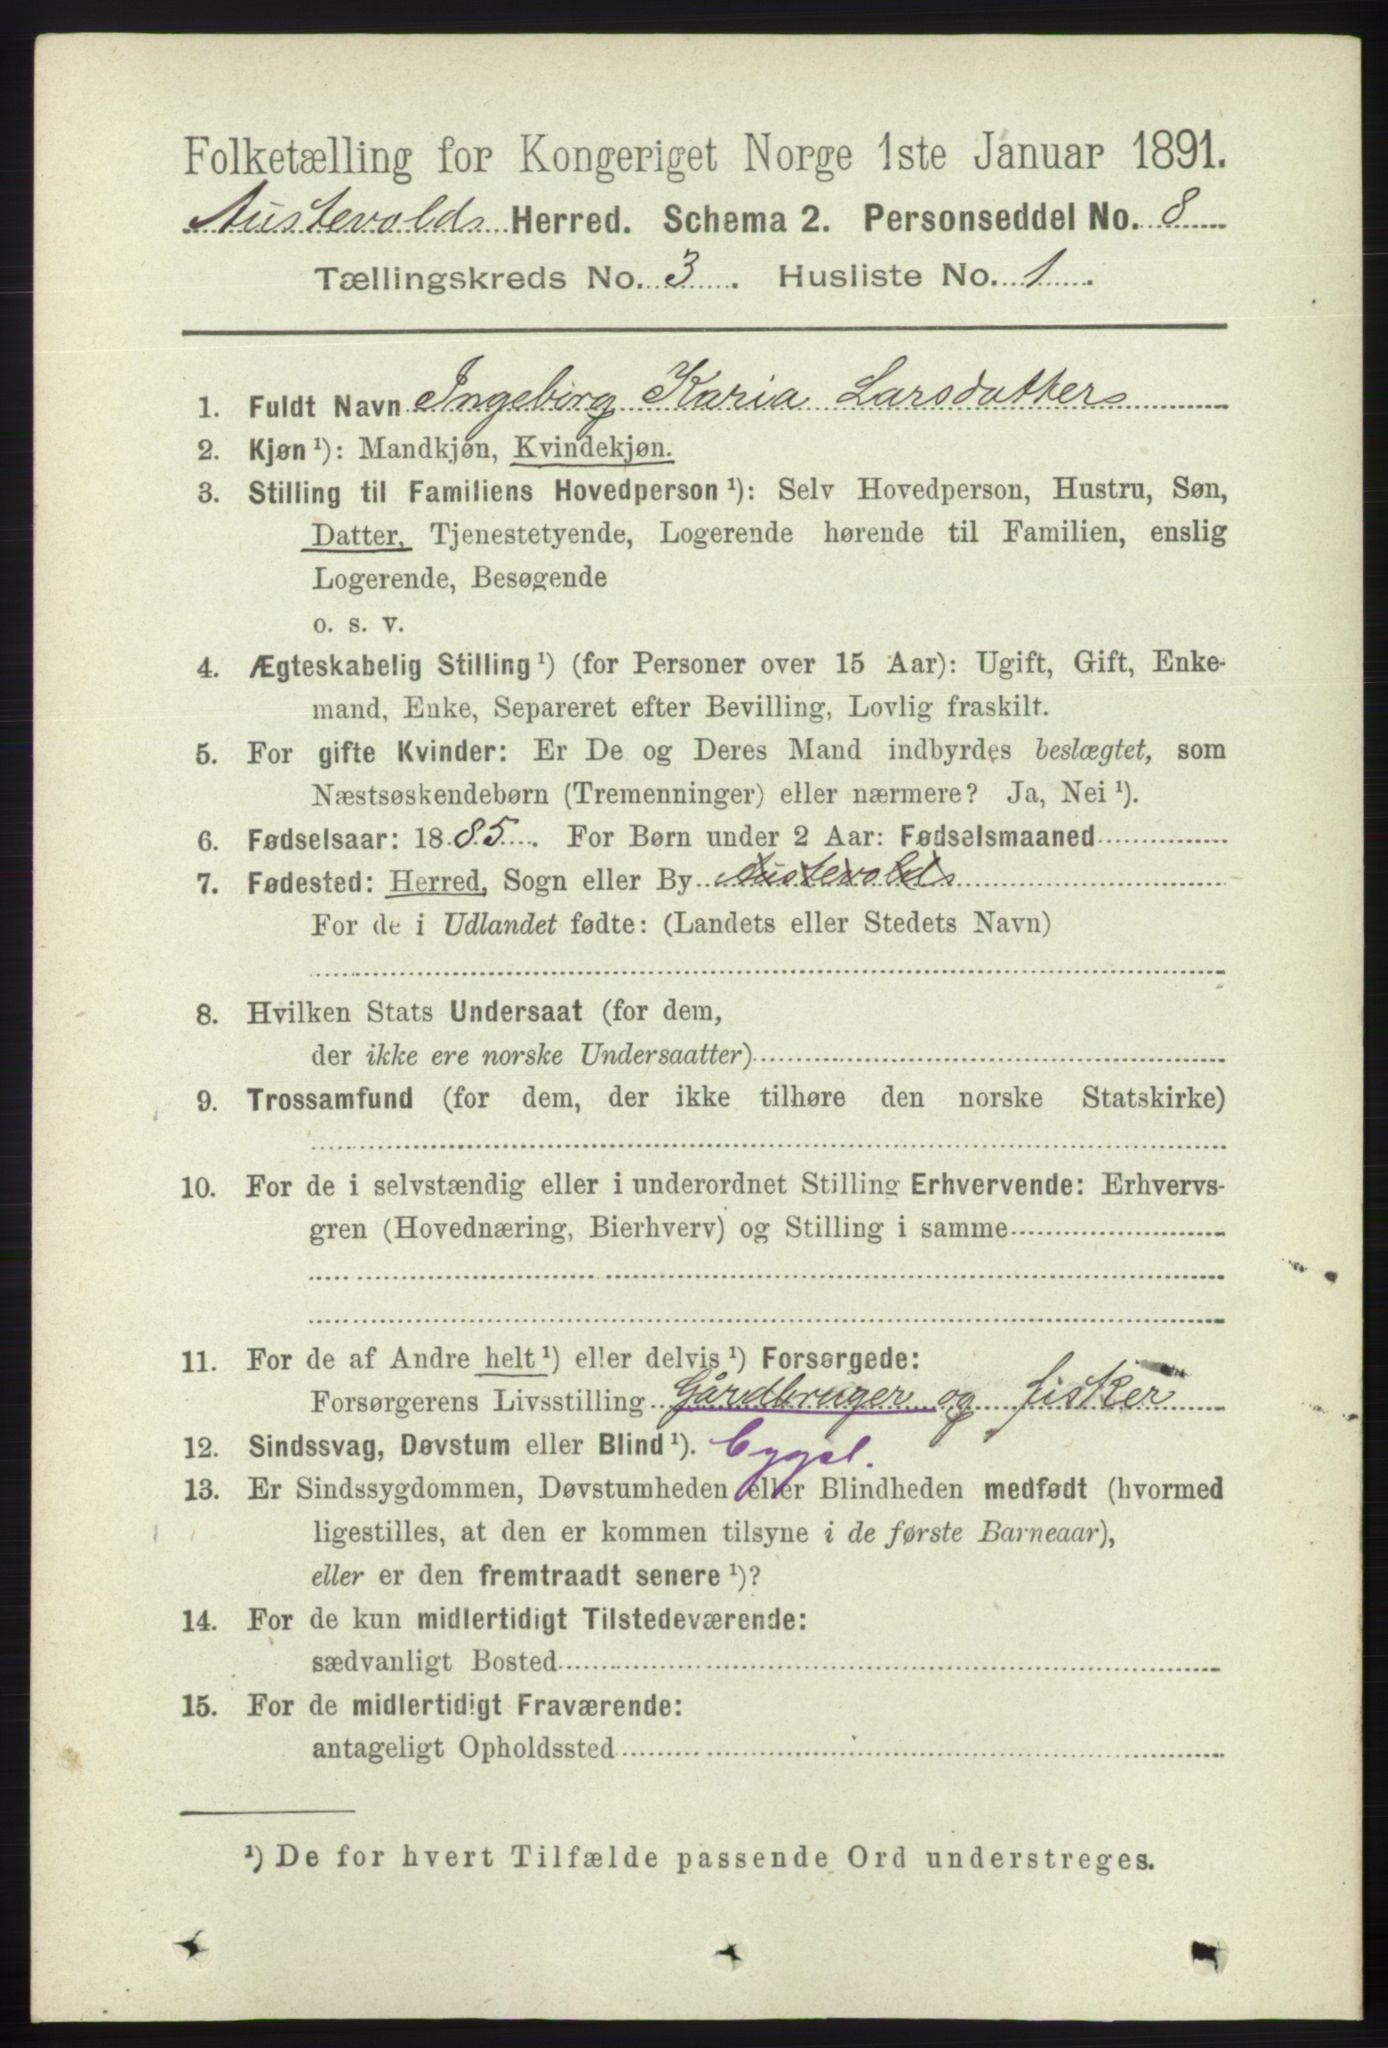 Folketælling for Kongeriget Norge 1ste Januar 1891.
Austevolds Herred. Schema 2. Personseddel No. 8
Tællingskreds No. 3. Husliste No. 1.
1. Fuldt Navn Ingeborg Karia Larsdatter
2. Kjøn ¹): Mandkjøn, Kvindekjøn.
3. Stilling til Familiens Hovedperson ¹): Selv Hovedperson, Hustru, Søn,
Datter, Tjenestetyende, Logerende hørende til Familien, enslig
Logerende, Besøgende
o. s. v.
4. Ægteskabelig Stilling ¹) (for Personer over 15 Aar): Ugift, Gift, Enke-
mand, Enke, Separeret efter Bevilling, Lovlig fraskilt.
5. For gifte Kvinder: Er De og Deres Mand indbyrdes beslægtet, som
Næstsøskendebørn (Tremenninger) eller nærmere? Ja, Nei ¹).
6. Fødselsaar: 1885. For Børn under 2 Aar: Fødselsmaaned
7. Fødested: Herred, Sogn eller By Austevolds
For de i Udlandet fødte: (Landets eller Stedets Navn)
8. Hvilken Stats Undersaat (for dem,
der ikke ere norske Undersaatter)
9. Trossamfund (for dem, der ikke tilhøre den norske Statskirke)
10. For de i selvstændig eller i underordnet Stilling Erhvervende: Erhvervs-
gren (Hovednæring, Bierhverv) og Stilling i samme
11. For de af Andre helt ¹) eller delvis ¹) Forsørgede:
Forsørgerens Livsstilling Gårdbruger og fisker
12. Sindssvag, Døvstum eller Blind ¹).
13. Er Sindssygdommen, Døvstumheden eller Blindheden medfødt (hvormed
ligestilles, at den er kommen tilsyne i de første Barneaar),
eller er den fremtraadt senere ¹)?
14. For de kun midlertidigt Tilstedeværende:
sædvanligt Bosted
15. For de midlertidigt Fraværende:
antageligt Opholdssted
¹) De for hvert Tilfælde passende Ord understreges.